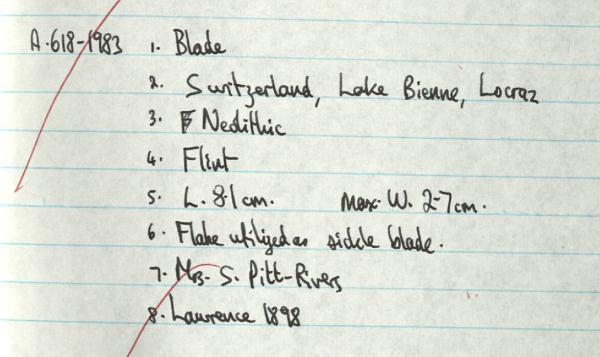 A.618-1983 1. Blade
2. Switzerland, Lake Bienne, Locraz
3. Neolithic
4. Flint
5. L. 8.1cm. Max. W. 2.7cm.
6. Flake utilized as sickle blade.
7. Mrs. S. Pitt-Rivers
8. Lawrence 1898